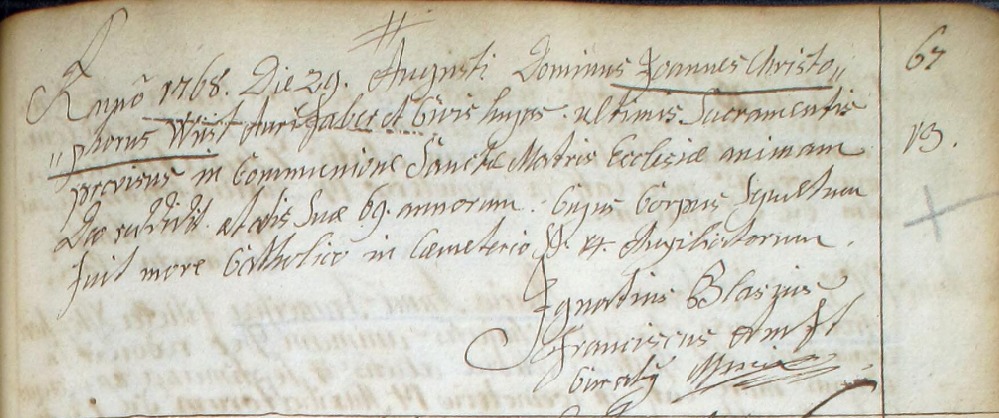 Annõ 1768. Die 29. Augusti Dominus Joannes Christo„ 67
„phorus Wüst Aurifaber et Civis hujas. ultimis Sacramentis 13.
provisus in Communione Sanctæ Matris Ecclesiæ animam
Deo reddidit ætatis suæ 69. annorum. Cujus Corpus Sepultum
fuit more Catholico in Cœmeterio SS. 14. Auxiliatorum.
Ignatius Blasius
Franciscus